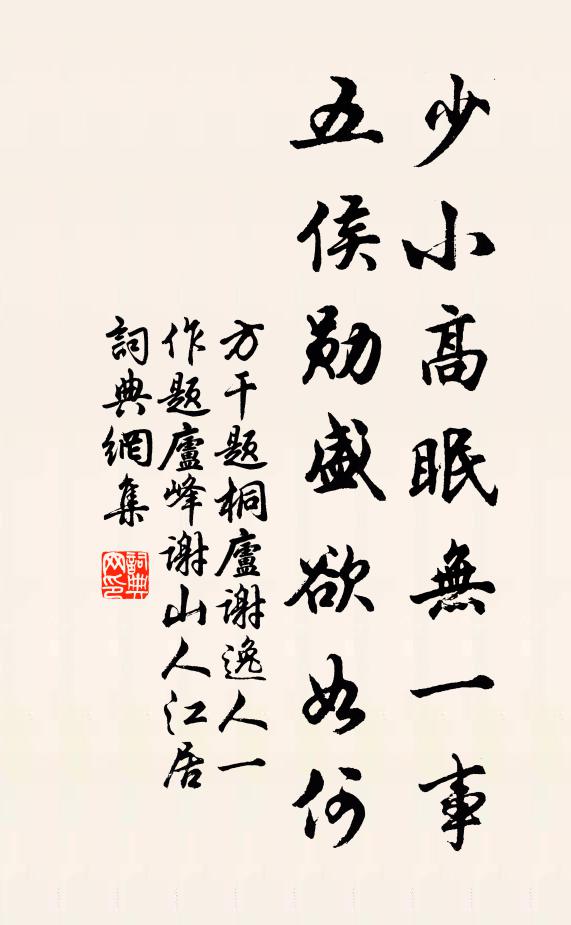 少小高眠無一事
五侯勛盛欲如何
方干题桐廬谢逸人一
作题廬峰谢山人江居
詞典網集
詞典
网印